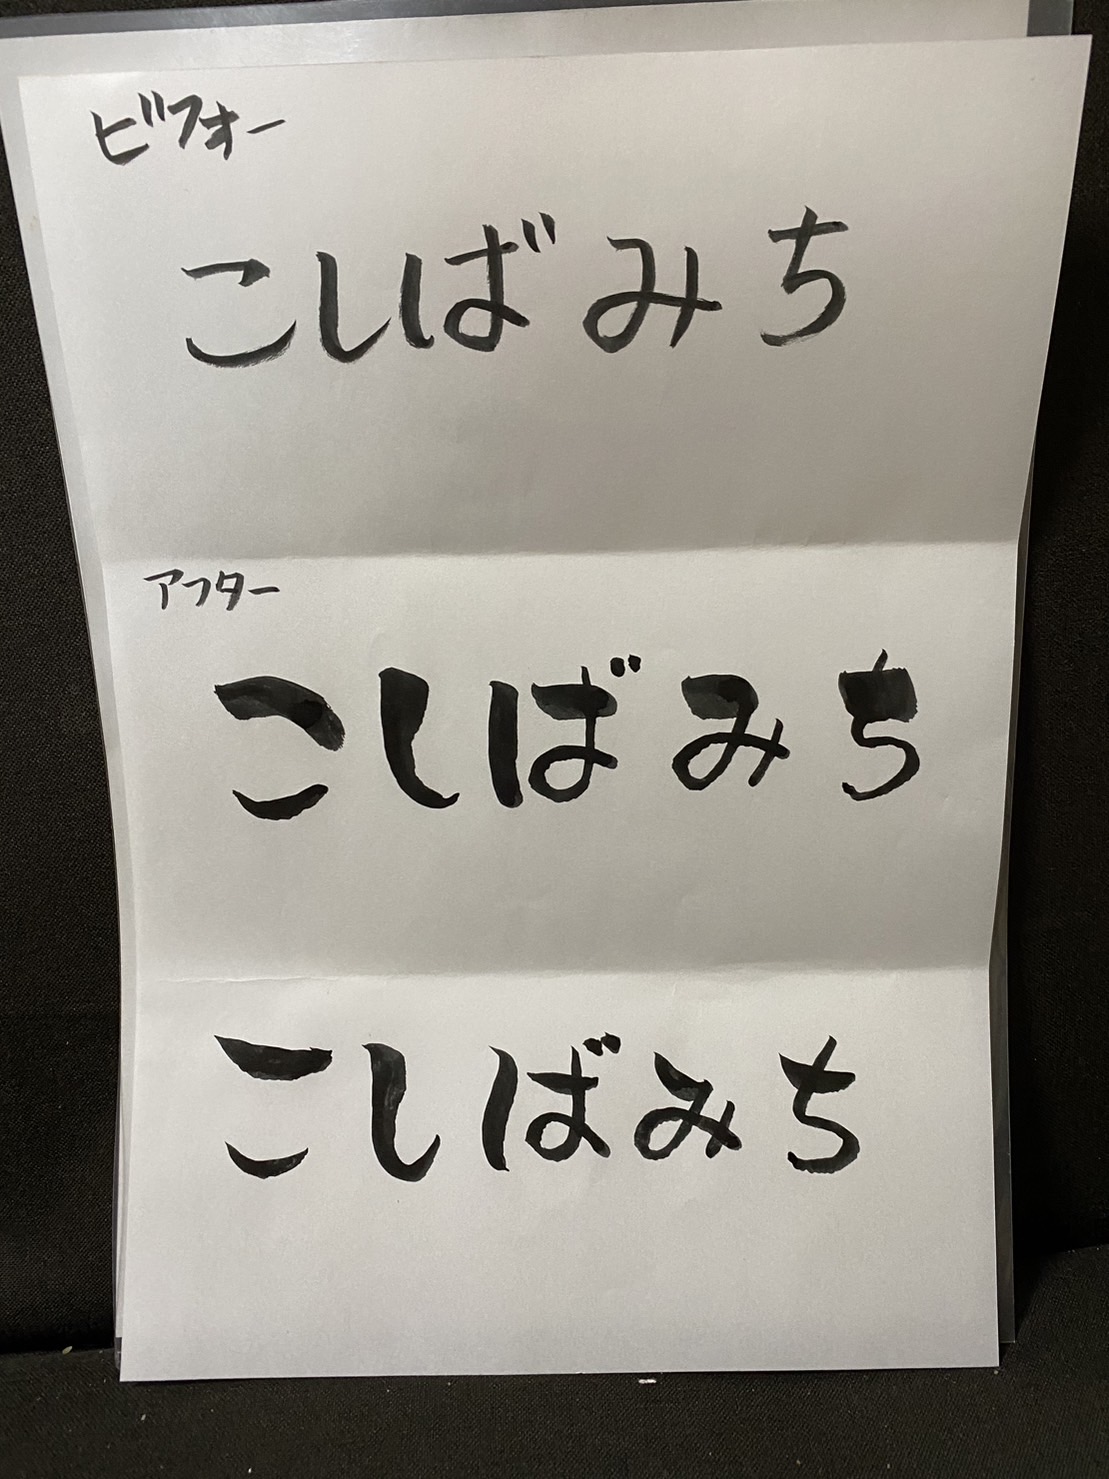 ビフォー
こしばみち
アフター
こしばみち
こしばみち